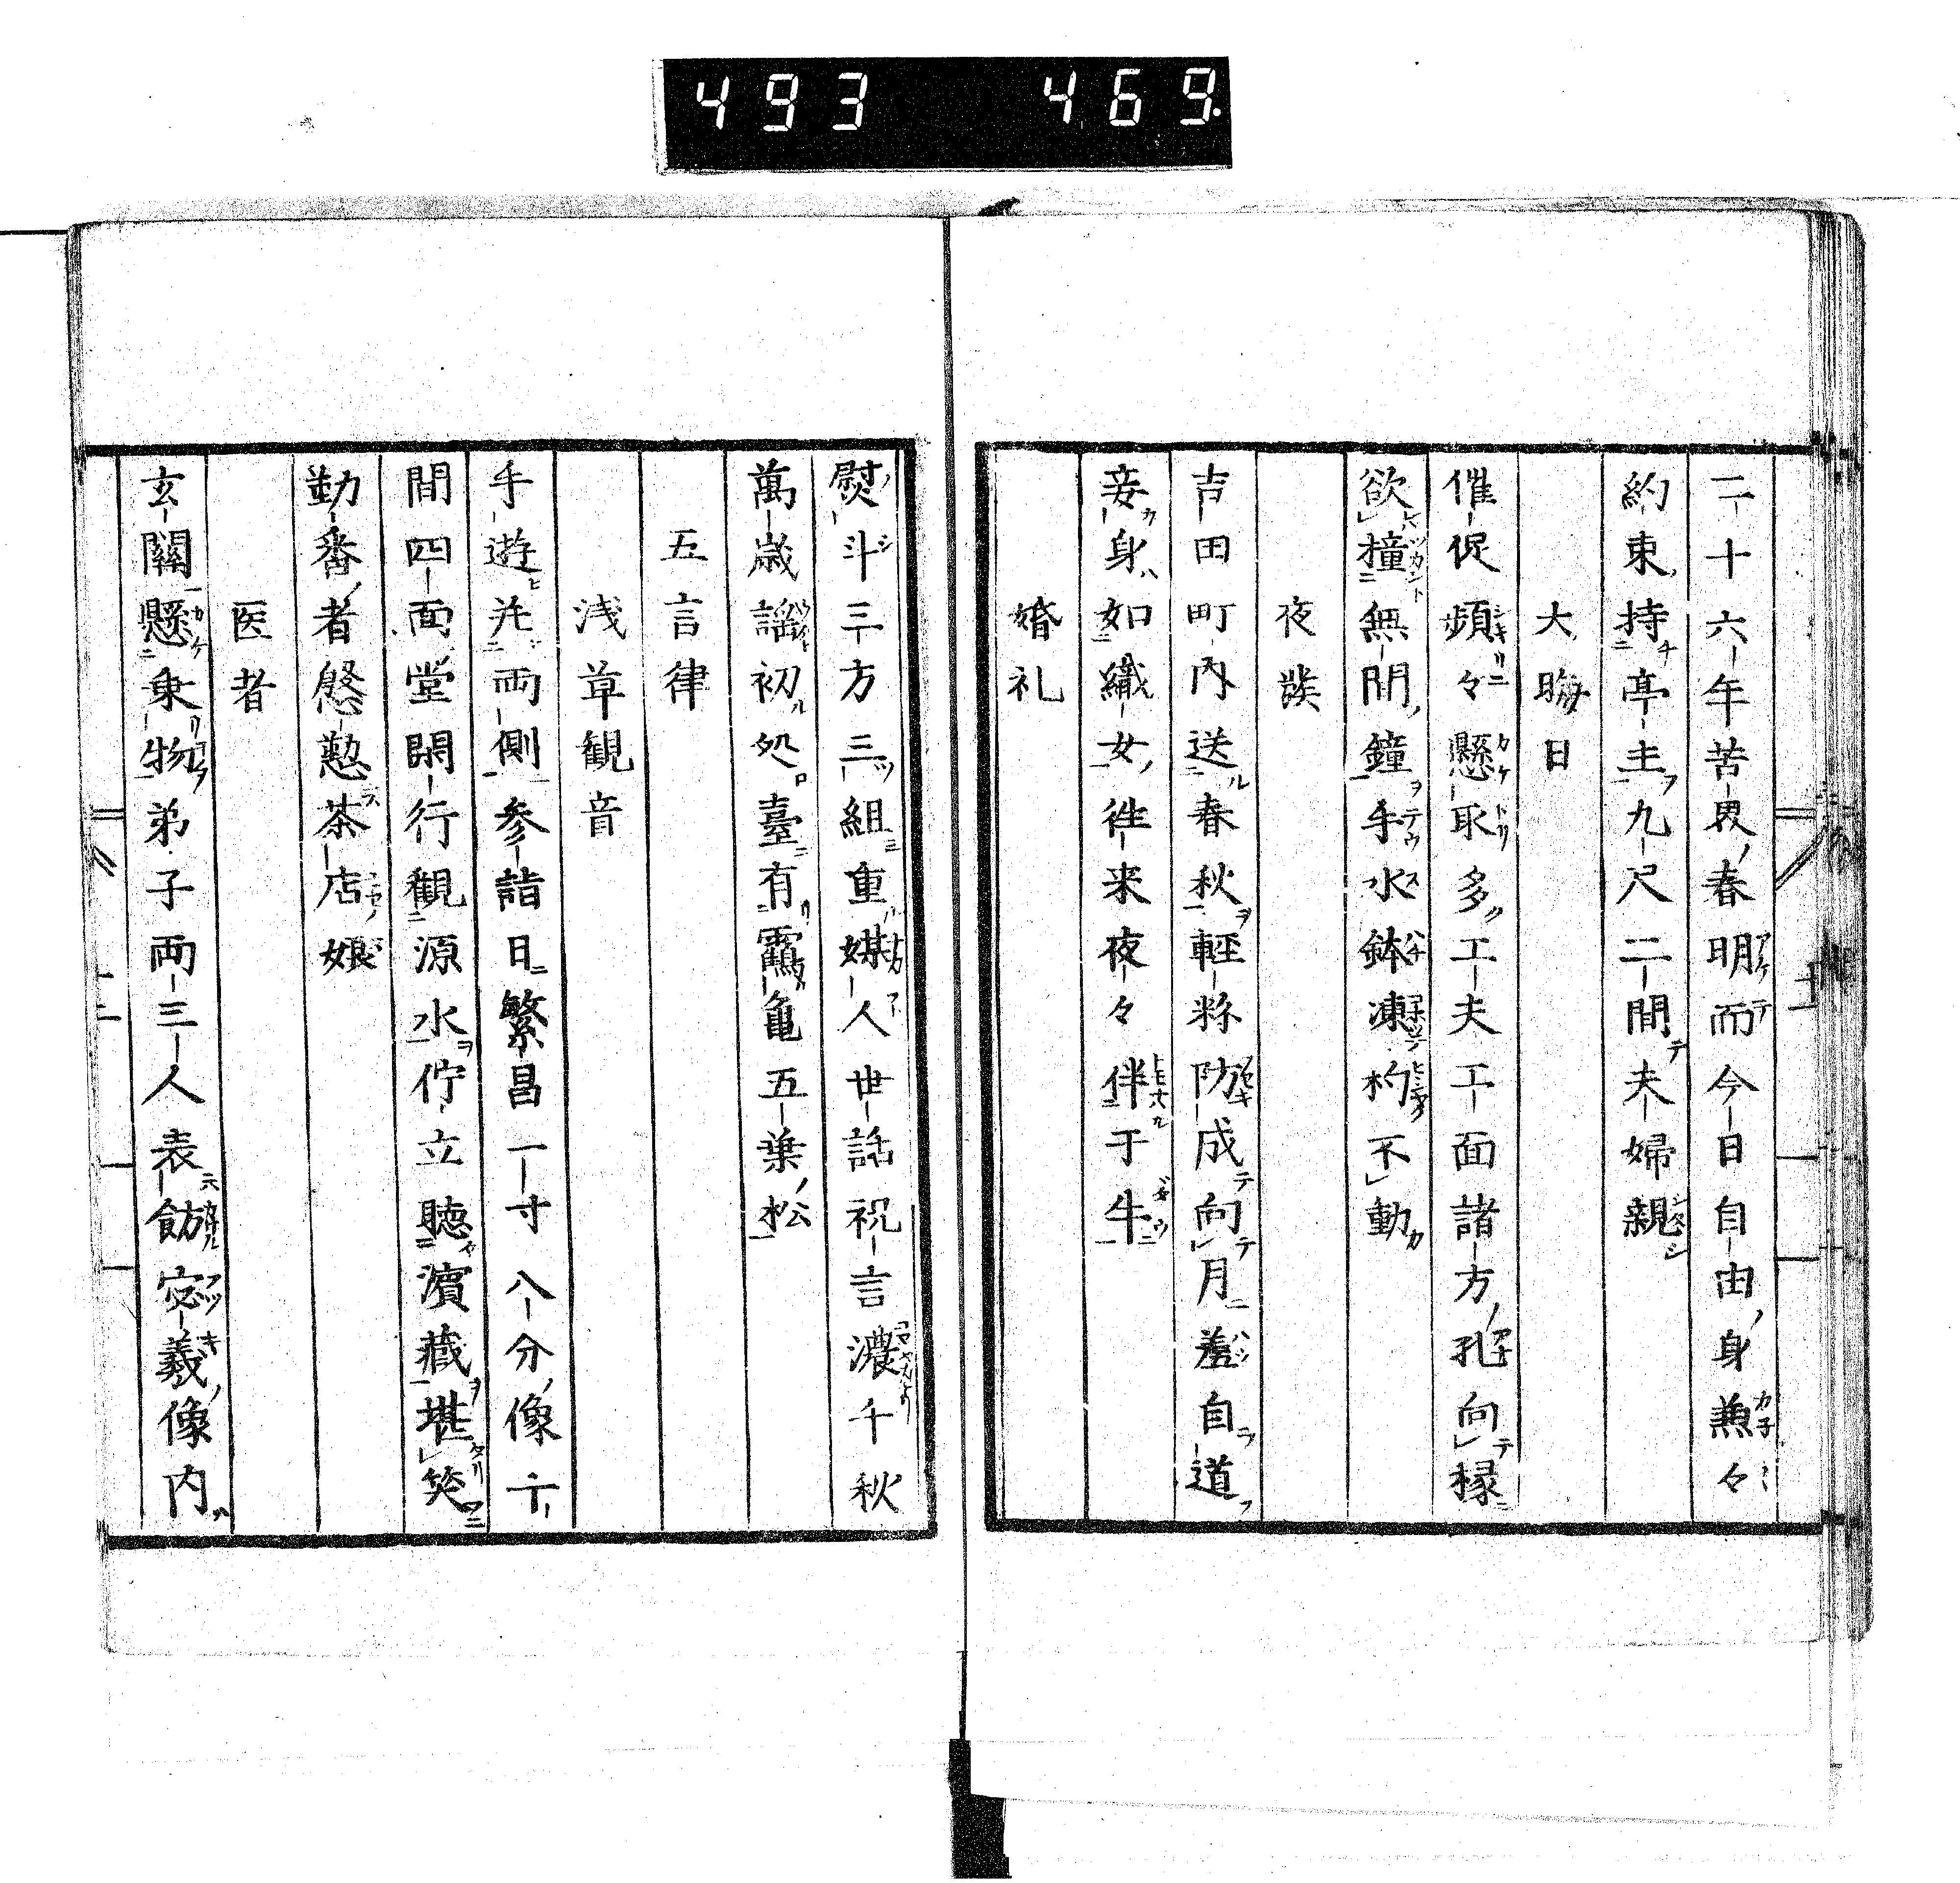 493 469.
二十六年苦界春明而今日自由身兼々
約束持亭主九尺二間夫婦親
大晦日
催促頻々懸取多工夫工面諸方孔向椽
欲撞無間鐘手水鉢凍杓不動
夜発
吉田町内送春秋輕粉防成向月羞自道
妾身如織女往来夜々伴于牛
婚礼
熨斗三方三組重媒人世話祝言濃千秋
萬歳謡初処臺有靏亀五葉松
五言律
浅草観音
手遊並両側参詣日繁昌一寸八分像十
間四面堂閙行観源水佇立聴濱藏堪笑
勤番者慇懃茶店娘
医者
玄關懸乗物弟子両三人表餝宓羲像内